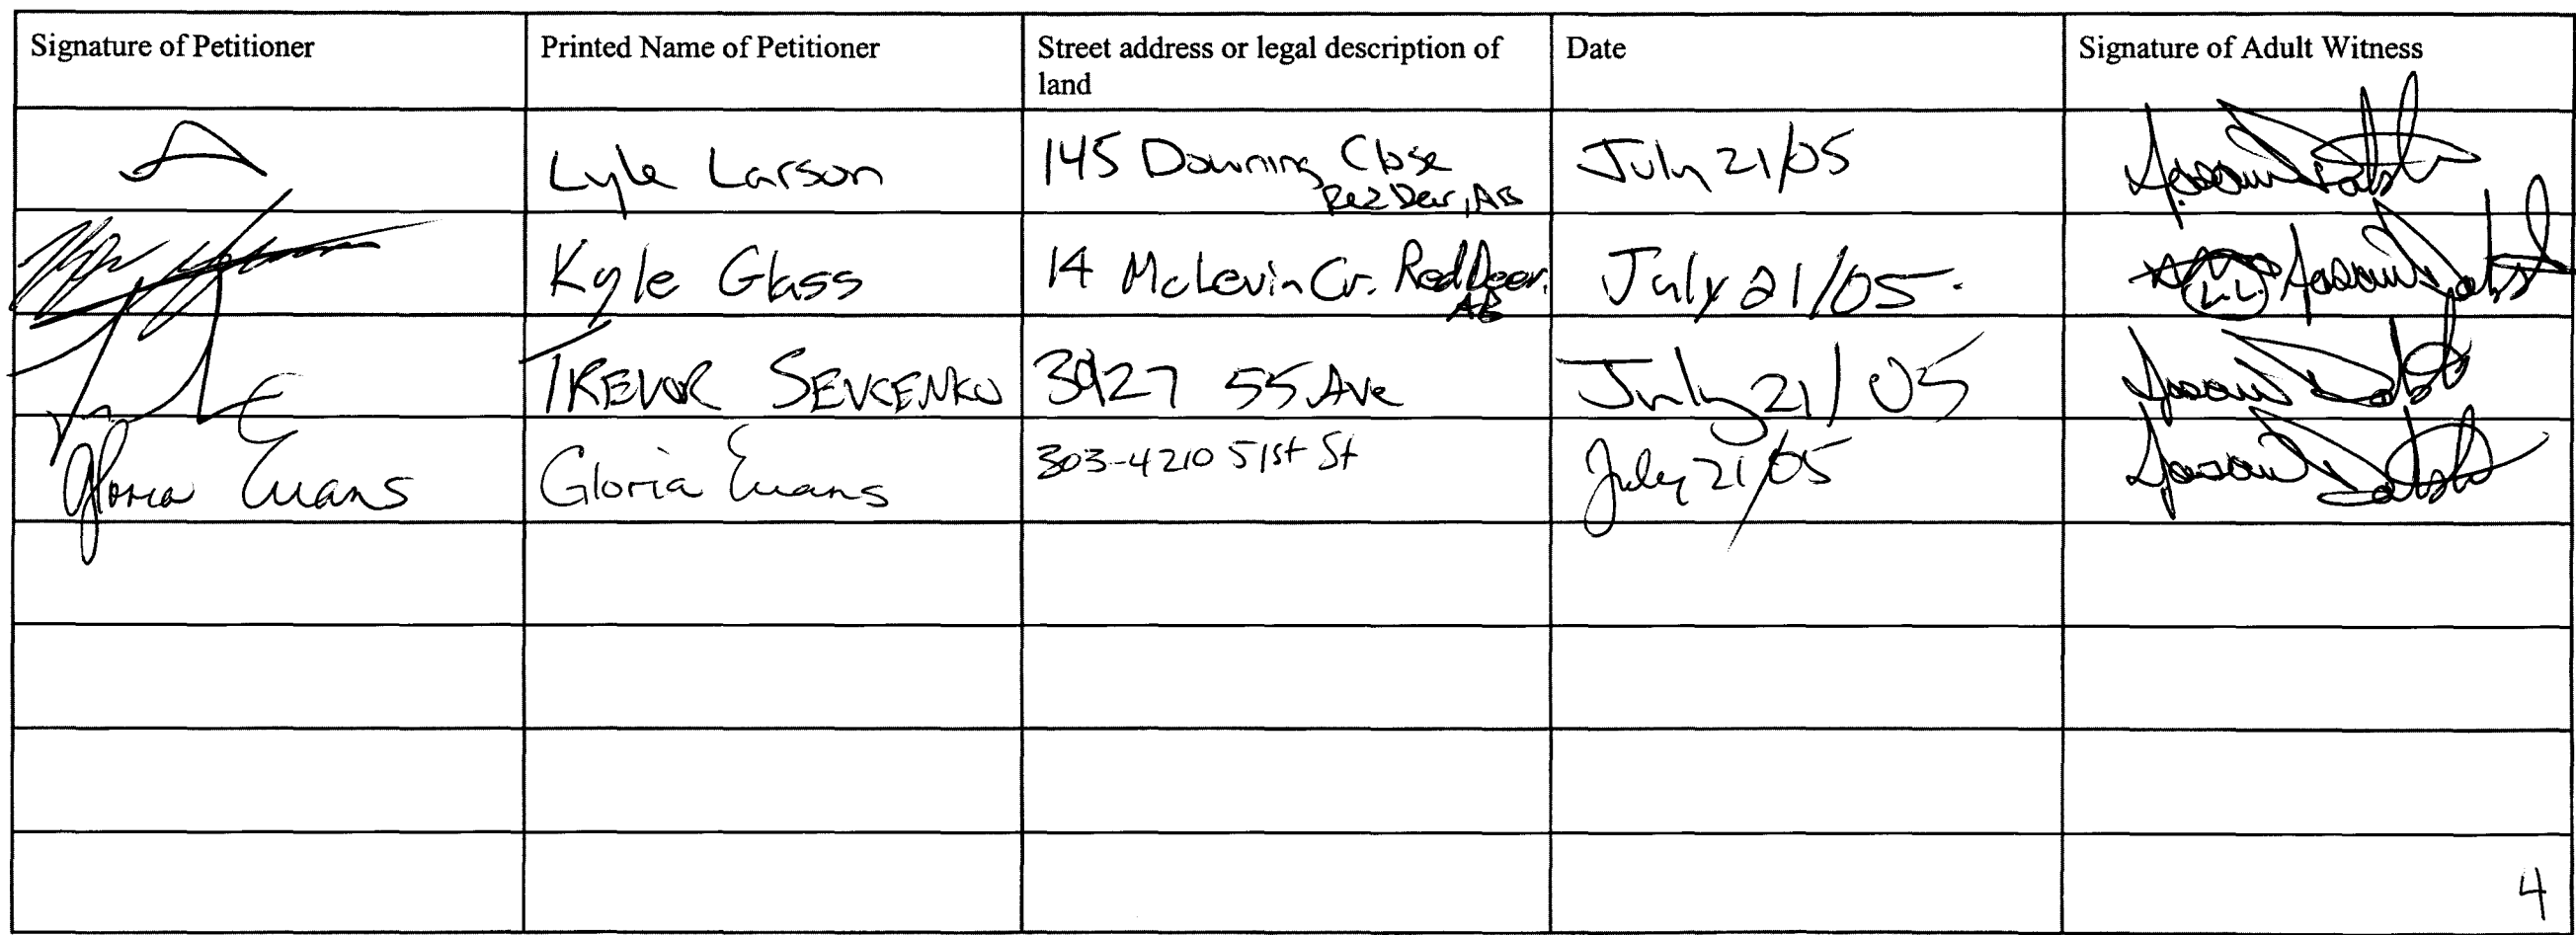 Signature of Petitioner
Printed Name of Petitioner
Street address or legal description of
land
Date
Signature of Adult Witness
Lyle Larson
145 Downing Close
Red Deer, AB
July 21/05
Kyle Glass
14 McLevin Cr. Red Deer,
AB
July 21/05.
L.L.
TREVOR SEVCENKO
3927 55 Ave
July 21/05
Gloria Evans
Gloria Evans
303-4210 51st St
July 21/05
4